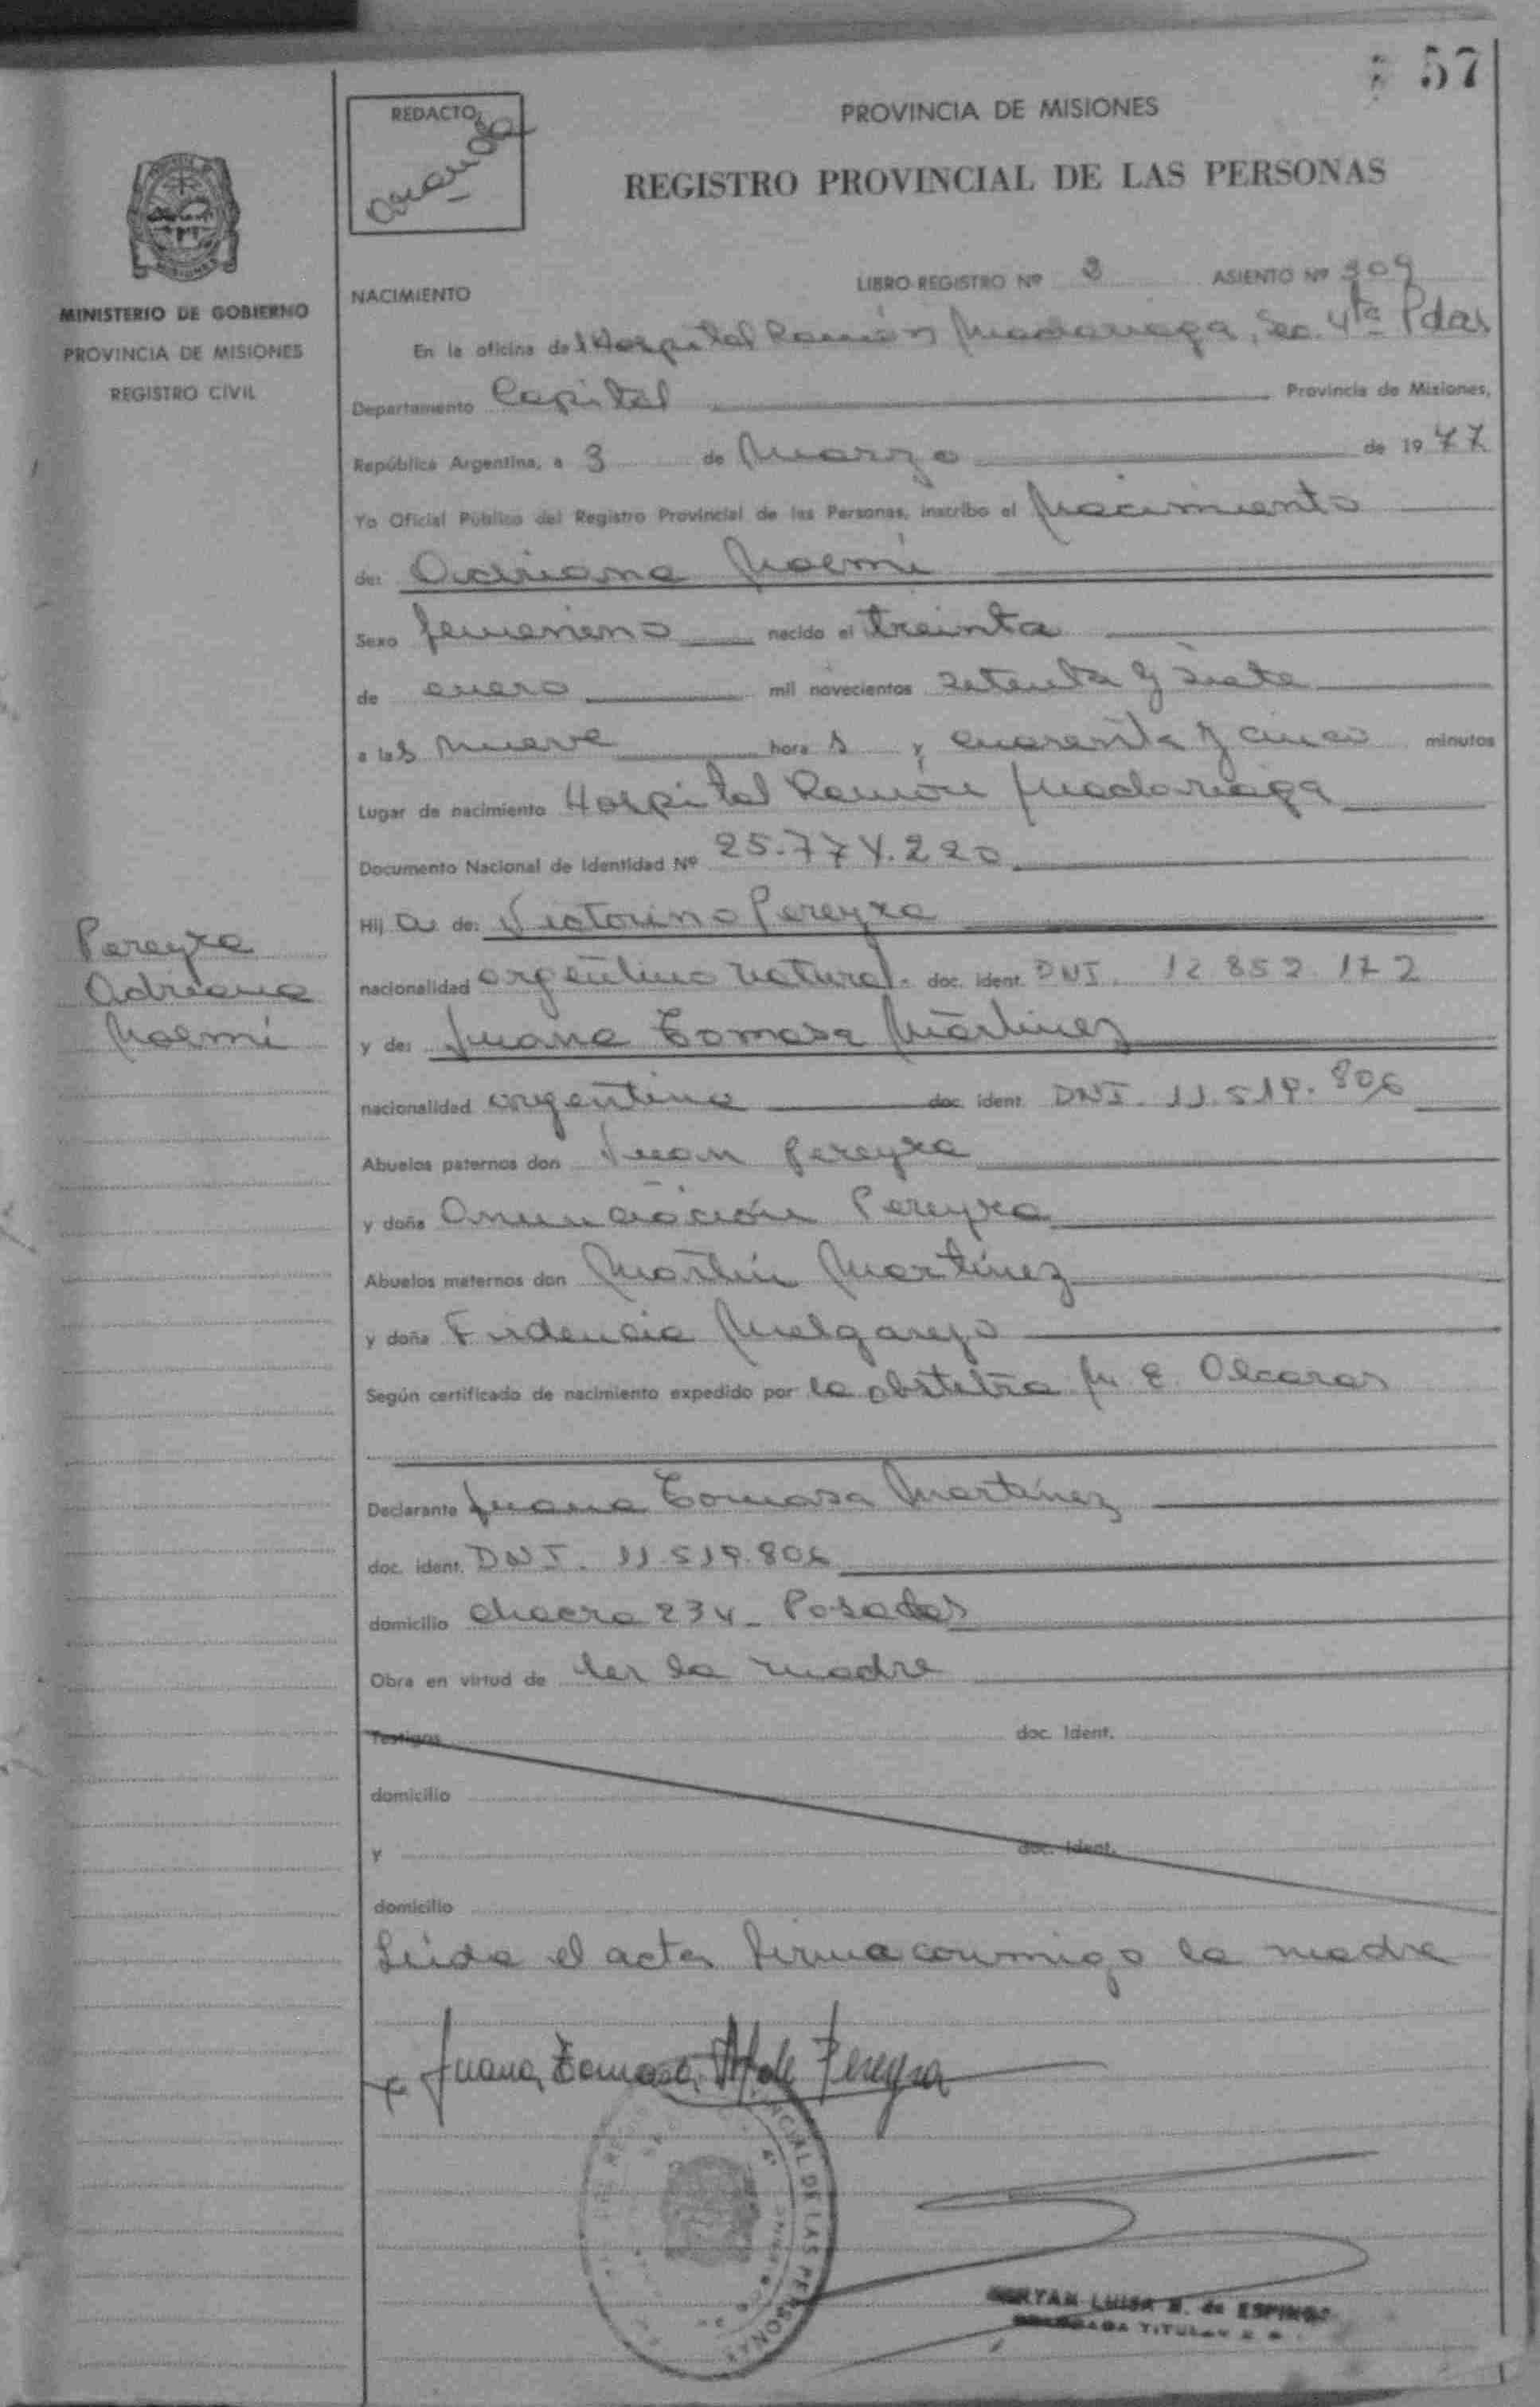 57
REDACTO
PROVINCIA DE MISIONES
REGISTRO PROVINCIAL DE LAS PERSONAS
MINISTERIO DE GOBIERNO
PROVINCIA DE MISIONES
REGISTRO CIVIL
NACIMIENTO
LIBRO REGISTRO Nº 3 ASIENTO Nº 309
En la oficina del Hospital Ramón Madariaga, Sec. 4ta Pdas
Departamento Capital Provincia de Misiones,
República Argentina, a 3 de Marzo de 1977
Yo Oficial Público del Registro Provincial de las Personas, inscribo el Nacimiento
de: Adriana Noemi
Sexo femenino nacido el treinta
de enero mil novecientos setenta y siete
a las nueve horas y, cuarenta y cinco minutos
Lugar de nacimiento Hospital Ramón Madariaga
Documento Nacional de Identidad Nº 25.774.220
Hija de: Victorino Pereyra
nacionalidad argentino natural. doc. ident. DNI. 12 852 172
y de: Juana Tomasa Martinez
nacionalidad argentina doc. ident. DNI. 11.519.806
Abuelos paternos don Juan Pereyra
y doña Anunciación Pereyra
Abuelos maternos don Martín Martinez
y doña Fidencia Melgarejo
Según certificado de nacimiento expedido por la obstetra M. E. Alcaras
Declarante Juana Tomasa Martinez
doc. ident. DNI. 11.519.806
domicilio chacra 234 - Posadas
Obra en virtud de ser la madre
Testigos doc. Ident.
domicilio
y doc. Ident.
domicilio
Leida el acta, firma conmigo la madre
Juana Tomasa M de Pereyra
Pereyra
Adriana
Noemi
LUISA R. de ESPINO
TITULAR
PROVINCIAL DE LAS PERSONAS